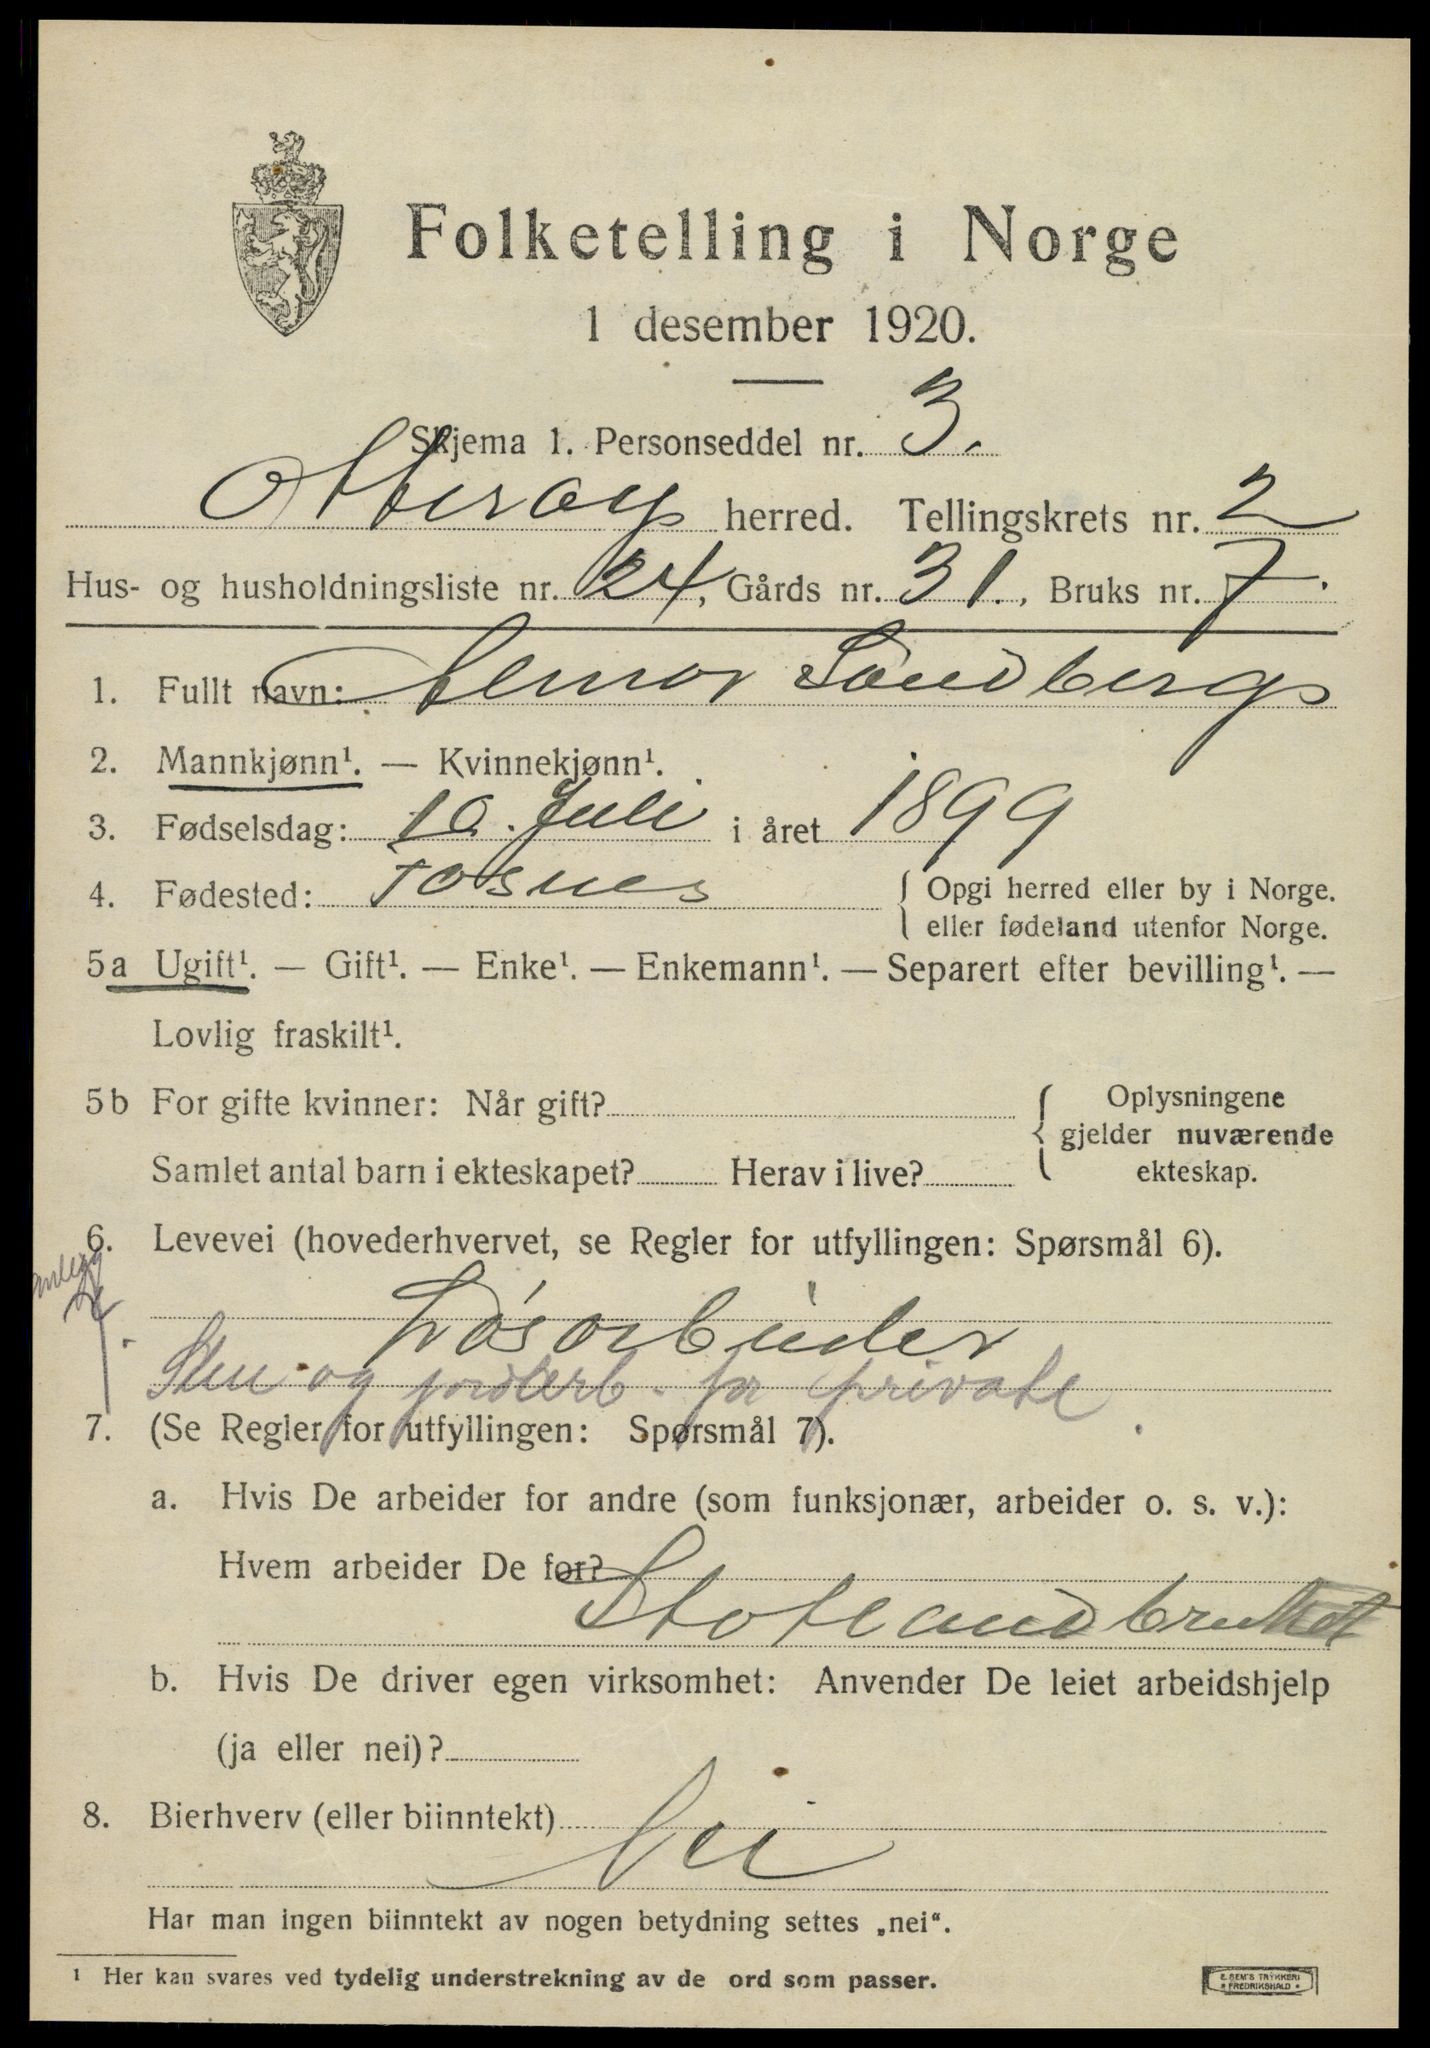 Folketelling i Norge
1 desember 1920.
Skjema 1. Personseddel nr. 3.
Otterøy herred. Tellingskrets nr. 2
Hus- og husholdningsliste nr. 24, Gårds nr. 31., Bruks nr. 7.
1. Fullt navn: Sandberg
2. Mannkjønn¹. — Kvinnekjønn¹.
3. Fødselsdag: 10. Juli i året 1899
4. Fødested: Fosnes { Opgi herred eller by i Norge.
eller fødeland utenfor Norge.
5a Ugift¹. — Gift¹. — Enke¹. — Enkemann¹. — Separert efter bevilling¹. —
Lovlig fraskilt¹.
5b For gifte kvinner: Når gift? { Oplysningene
gjelder nuværende
Samlet antal barn i ekteskapet? Herav i live? ekteskap.
6. Levevei (hovederhvervet, se Regler for utfyllingen: Spørsmål 6).
Løsarbeider
Sten og jordarb. for private.
7. (Se Regler for utfyllingen: Spørsmål 7).
a. Hvis De arbeider for andre (som funksjonær, arbeider o. s. v.):
Hvem arbeider De for?
b. Hvis De driver egen virksomhet: Anvender De leiet arbeidshjelp
(ja eller nei)?
8. Bierhverv (eller biinntekt)
Nei
Har man ingen biinntekt av nogen betydning settes „nei“.
¹ Her kan svares ved tydelig understrekning av de ord som passer.
E. SEM'S TRYKKERI
• FREDRIKSHALD •